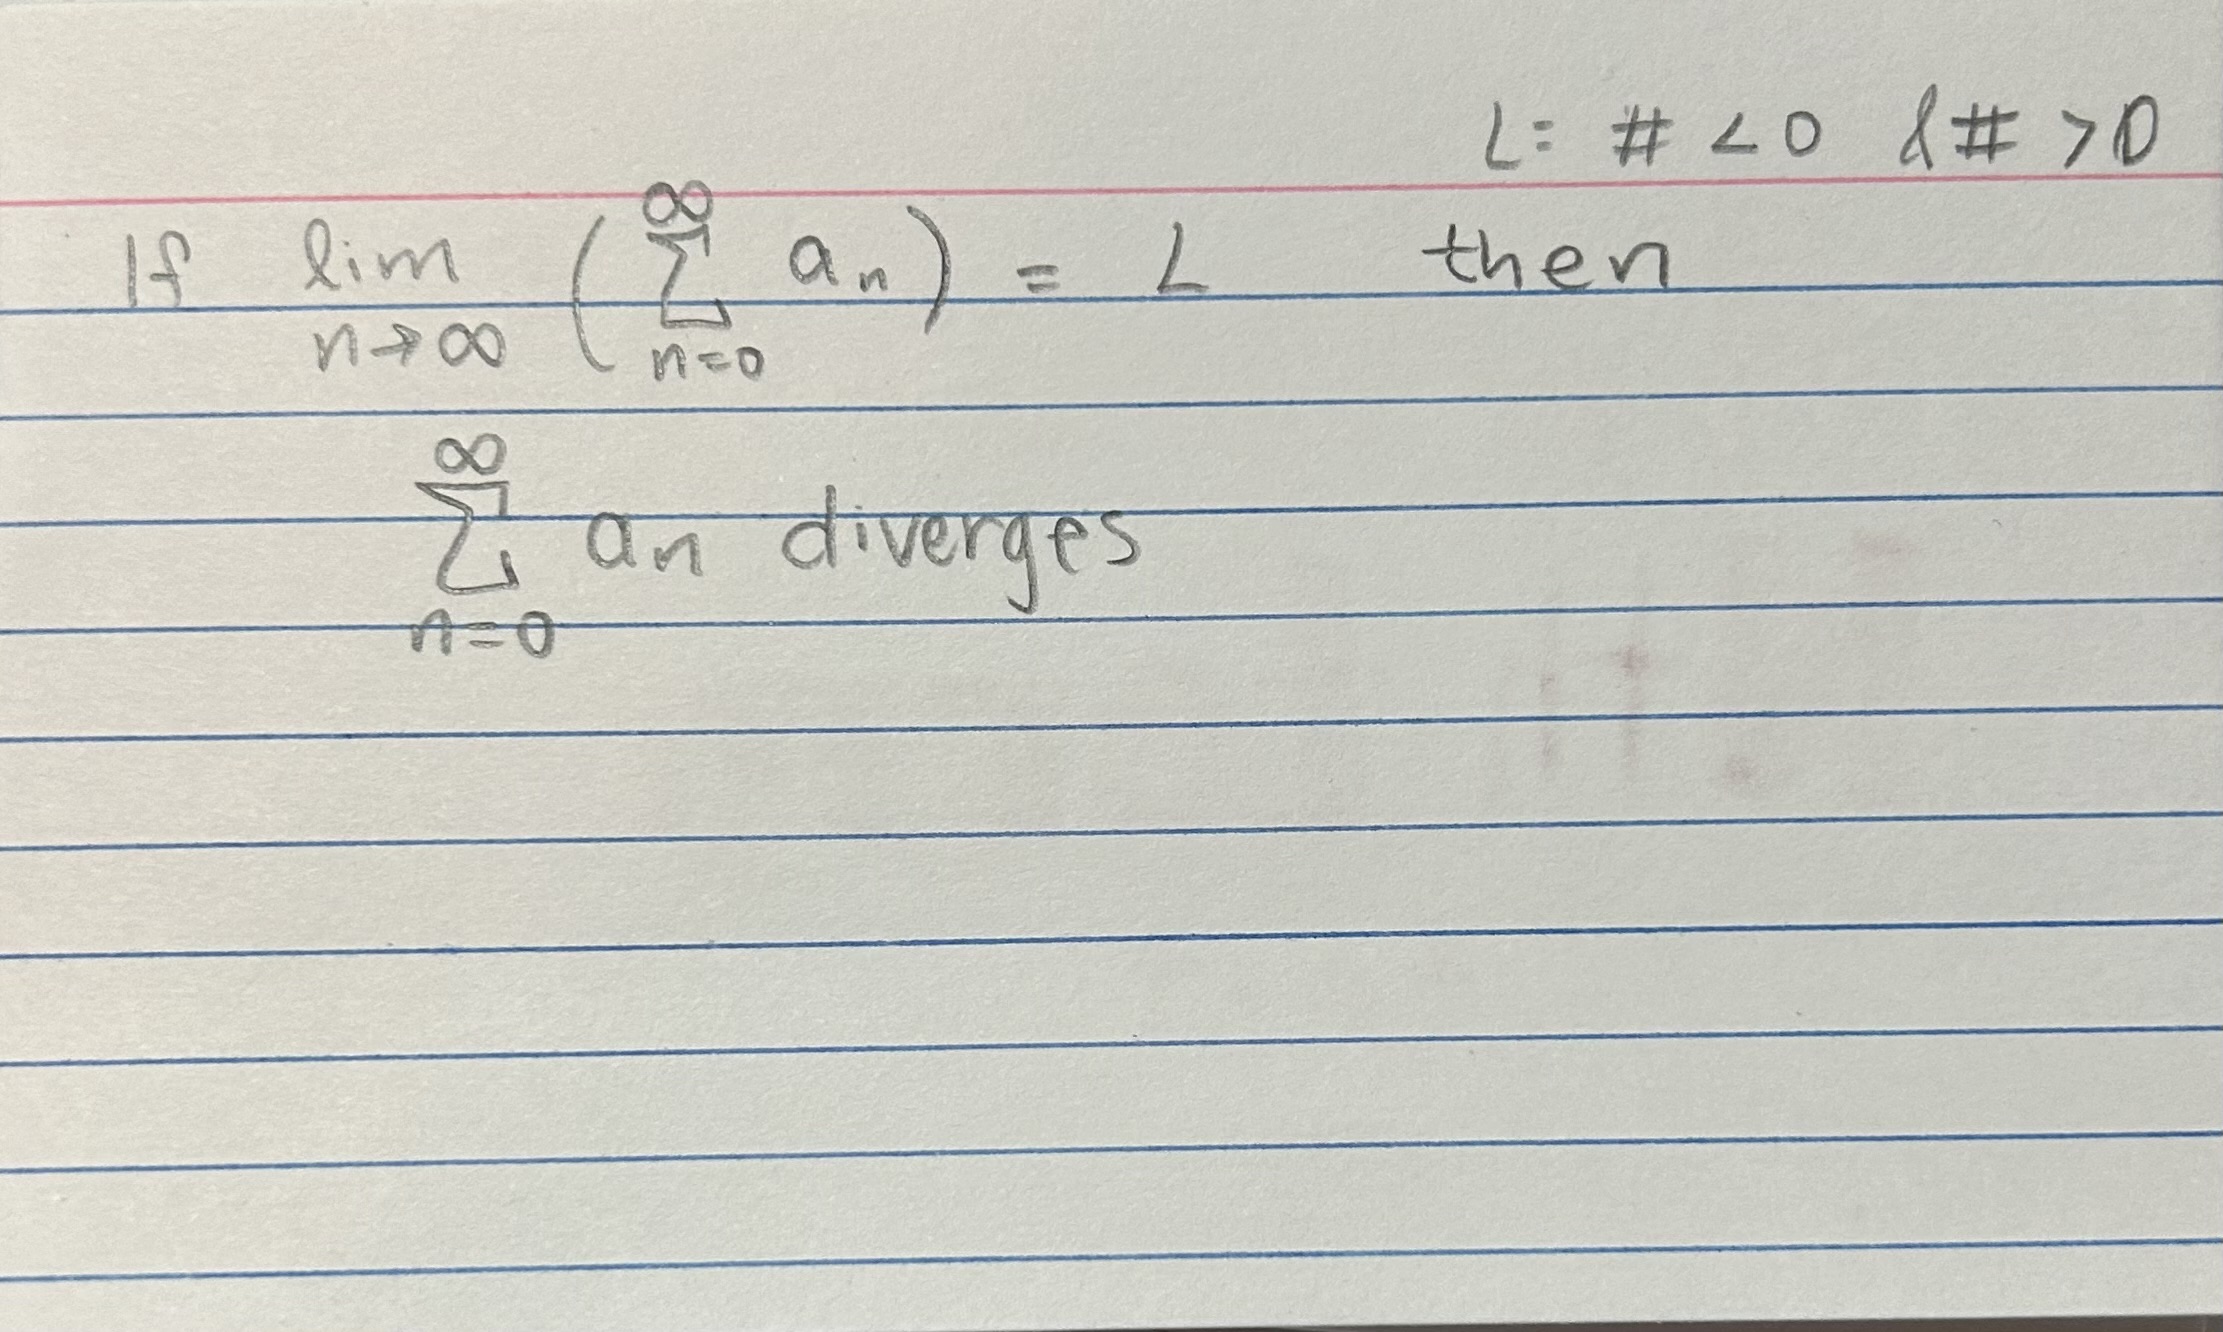 L: # < 0 & # > 0
If lim n→∞ ( ∞ Σ n=0 aₙ ) = L then
∞ Σ n=0 aₙ diverges